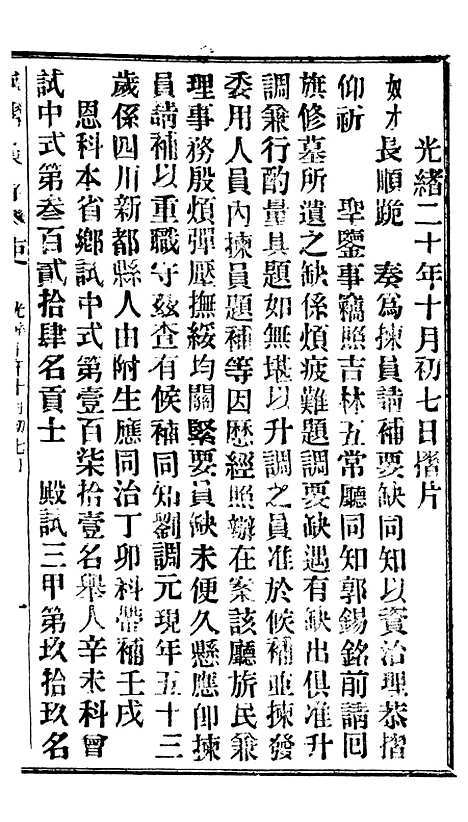 光緒二十年十月初七日摺片
奴才長順跪　奏爲揀員請補要缺同知以資治理恭摺
仰祈　聖鑒事竊照吉林五常廳同知郭錫銘前請回
旗修墓所遺之缺係煩疲難題調要缺遇有缺出俱准升
調兼行酌量具題如無堪以升調之員准於候補並揀發
委用人員內揀員題補等因歷經照辦在案該廳旗民兼
理事務殷煩彈壓撫綏均關緊要員缺未便久懸應卽揀
員請補以重職守茲查有候補同知劉調元現年五十三
歲係四川新都縣人由附生應同治丁卯科帶補壬戌
恩科本省鄉試中式第壹百柒拾壹名舉人辛未科會
試中式第叁百貳拾肆名貢士　殿試三甲第玖拾玖名